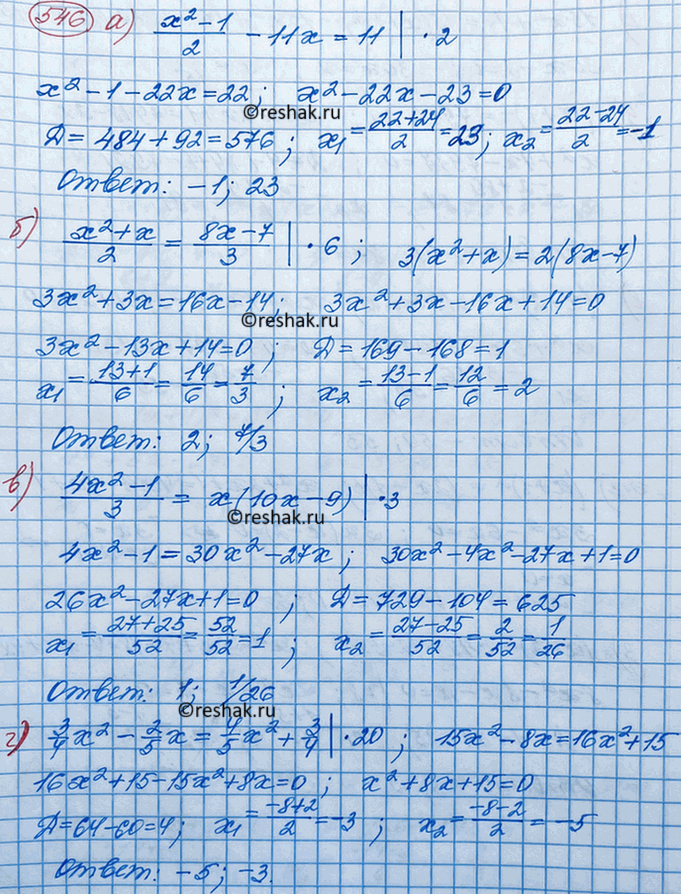 546 а) (x² − 1)/2 − 11x = 11 | · 2
x² − 1 − 22x = 22 ; x² − 22x − 23 = 0
©reshak.ru
D = 484 + 92 = 576 ; x₁ = (22+24)/2 = 23 ; x₂ = (22−24)/2 = −1
Ответ: −1; 23
б) (x² + x)/2 = (8x − 7)/3 | · 6 ; 3(x² + x) = 2(8x − 7)
3x² + 3x = 16x − 14 ; 3x² + 3x − 16x + 14 = 0
©reshak.ru
3x² − 13x + 14 = 0 ; D = 169 − 168 = 1
x₁ = (13+1)/6 = 14/6 = 7/3 ; x₂ = (13−1)/6 = 12/6 = 2
Ответ: 2; 7/3
в) (4x² − 1)/3 = x(10x − 9) | · 3
©reshak.ru
4x² − 1 = 30x² − 27x ; 30x² − 4x² − 27x + 1 = 0
26x² − 27x + 1 = 0 ; D = 729 − 104 = 625
x₁ = (27+25)/52 = 52/52 = 1 ; x₂ = (27−25)/52 = 2/52 = 1/26
Ответ: 1; 1/26
©reshak.ru
г) 3/4 x² − 2/5 x = 4/5 x² + 3/4 | · 20 ; 15x² − 8x = 16x² + 15
16x² + 15 − 15x² + 8x = 0 ; x² + 8x + 15 = 0
D = 64 − 60 = 4 ; x₁ = (−8+2)/2 = −3 ; x₂ = (−8−2)/2 = −5
Ответ: −5; −3.